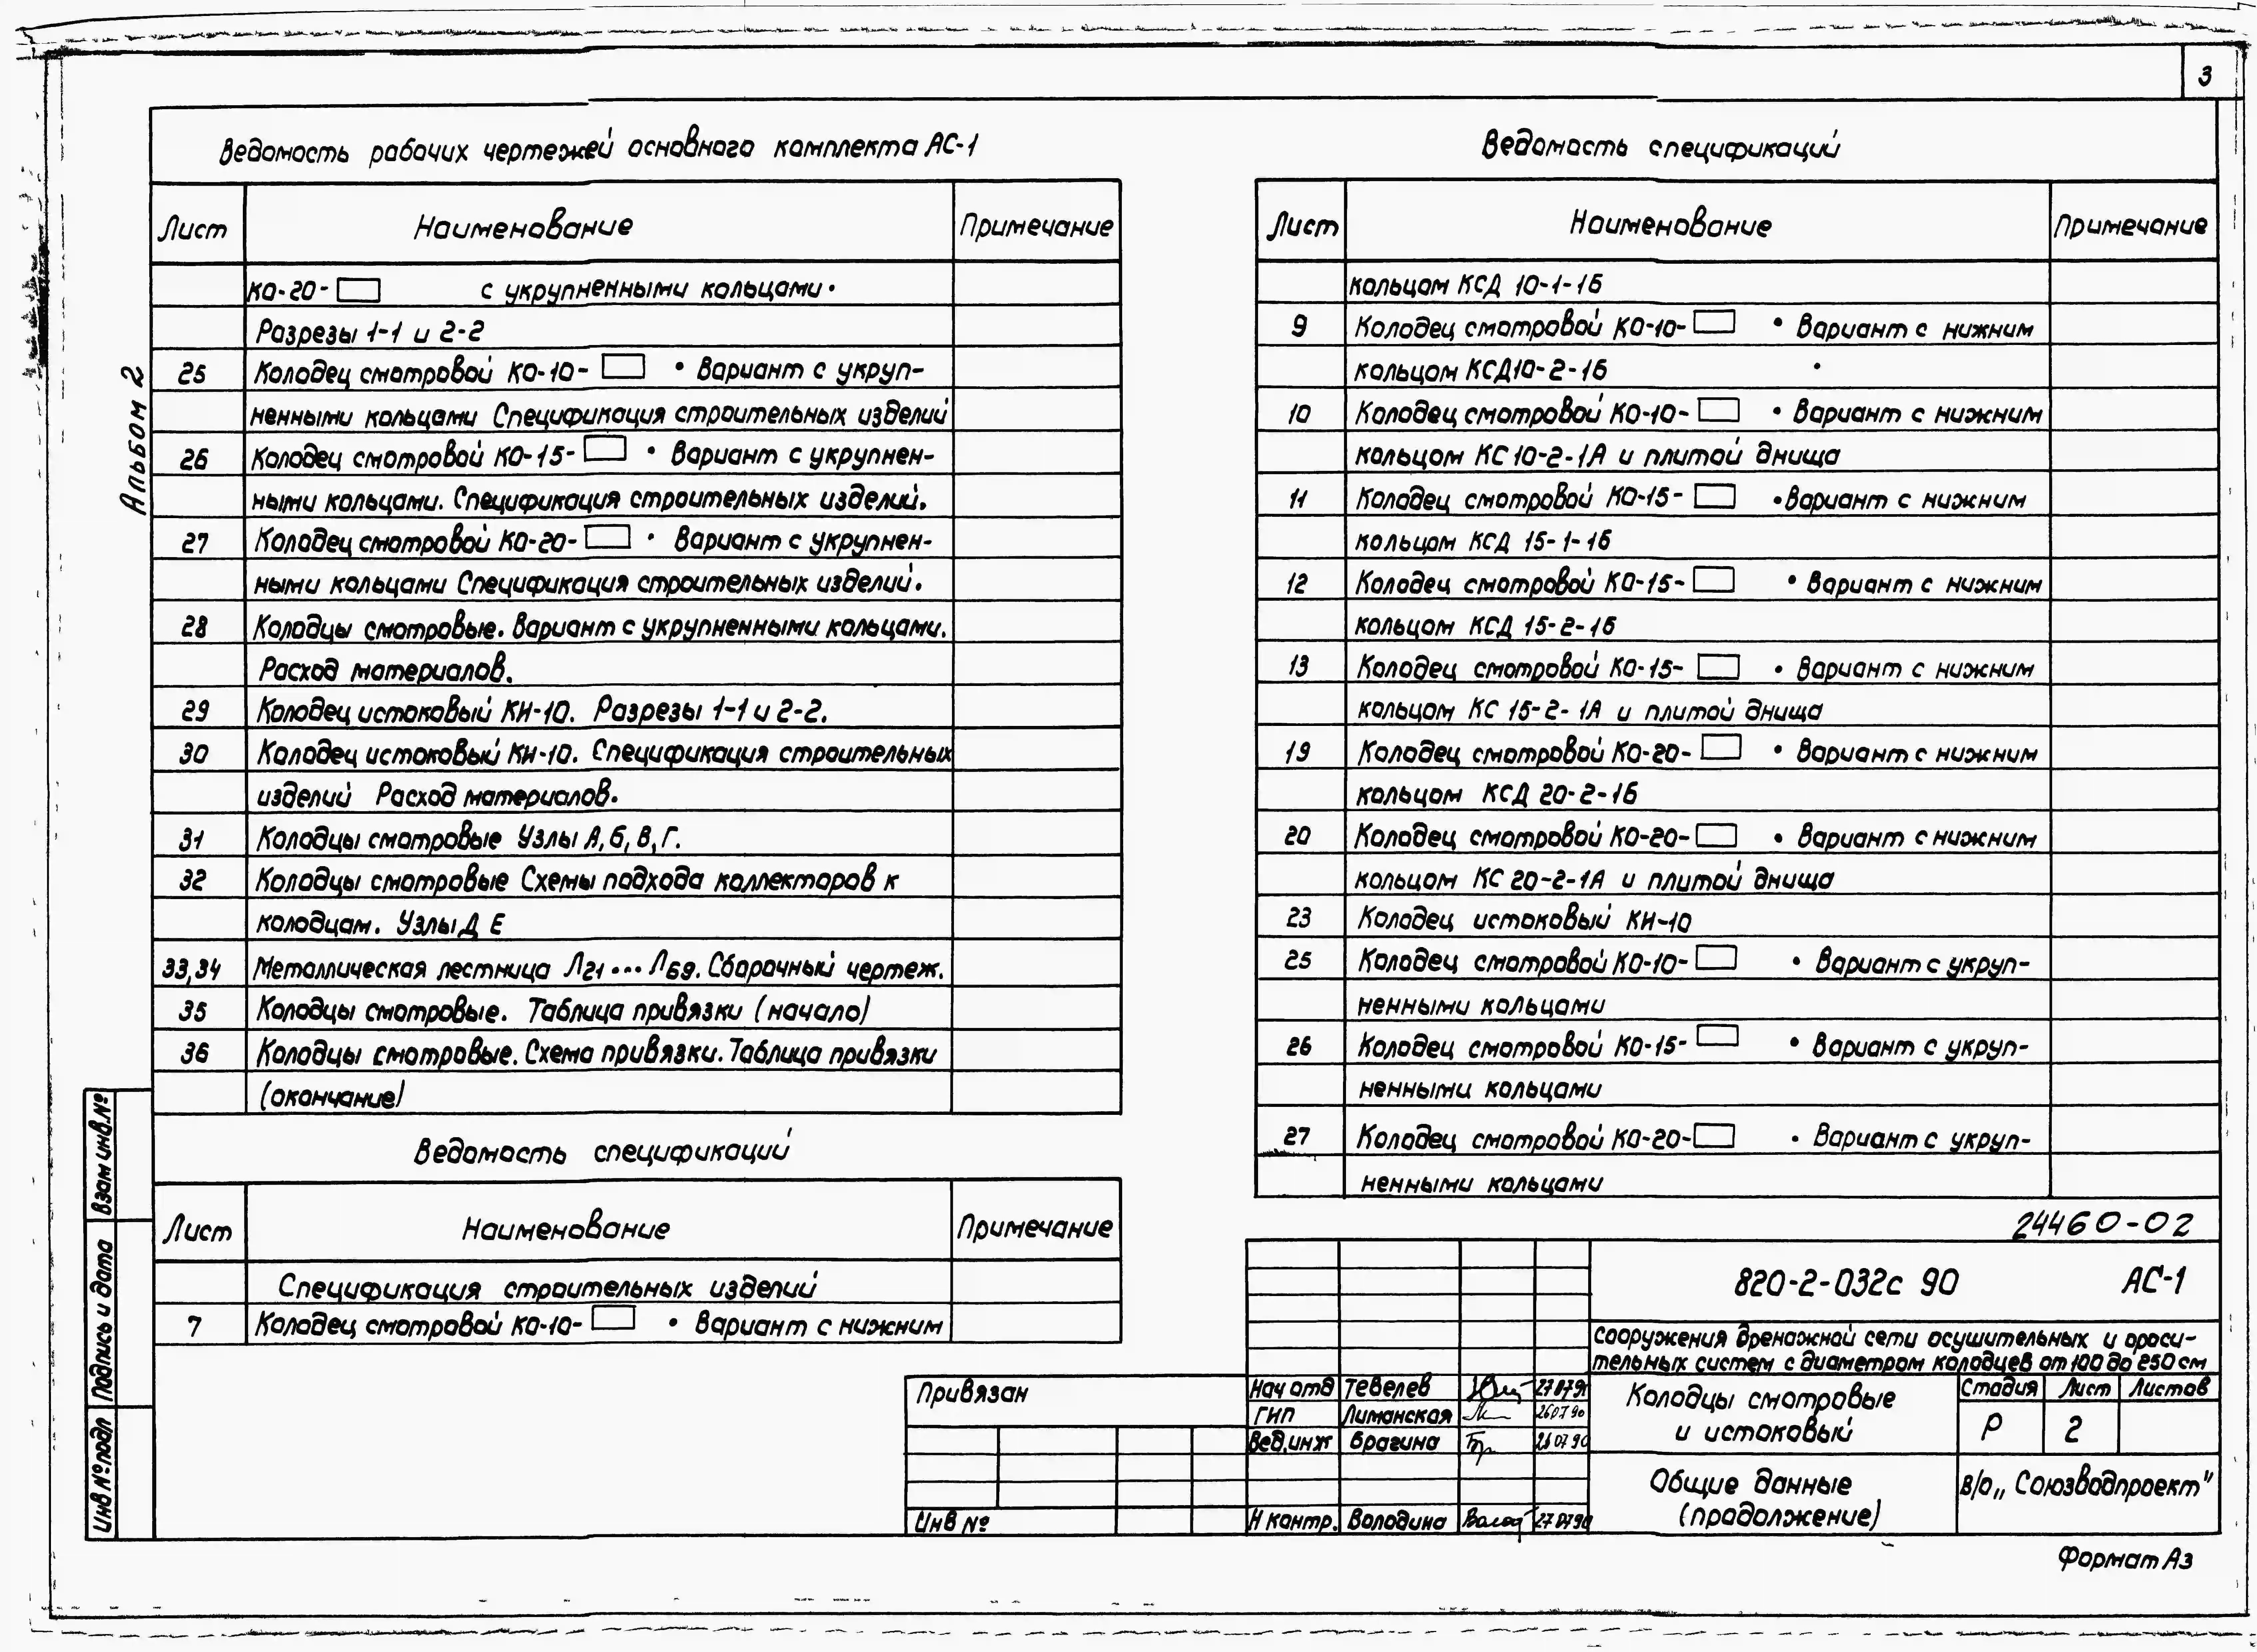 3
Альбом 2
Ведомость рабочих чертежей основного комплекта АС-1
Лист Наименование Примечание
КО-20- с укрупненными кольцами.
Разрезы 1-1 и 2-2
25 Колодец смотровой КО-10- . Вариант с укруп-
ненными кольцами Спецификация строительных изделий
26 Колодец смотровой КО-15- . Вариант с укрупнен-
ными кольцами. Спецификация строительных изделий.
27 Колодец смотровой КО-20- . Вариант с укрупнен-
ными кольцами Спецификация строительных изделий.
28 Колодцы смотровые. Вариант с укрупненными кольцами.
Расход материалов.
29 Колодец истоковый КИ-10. Разрезы 1-1 и 2-2.
30 Колодец истоковый КИ-10. Спецификация строительных
изделий Расход материалов.
31 Колодцы смотровые Узлы А, Б, В, Г.
32 Колодцы смотровые Схемы подхода коллекторов к
колодцам. Узлы Д Е
33,34 Металлическая лестница Л21...Л69. Сборочный чертеж.
35 Колодцы смотровые. Таблица привязки (начало)
36 Колодцы смотровые. Схема привязки. Таблица привязки
(окончание)
Ведомость спецификаций
Лист Наименование Примечание
Спецификация строительных изделий
7 Колодец смотровой КО-10- . Вариант с нижним
Ведомость спецификаций
Лист Наименование Примечание
кольцом КСД 10-1-1б
9 Колодец смотровой КО-10- . Вариант с нижним
кольцом КСД10-2-1б
10 Колодец смотровой КО-10- . Вариант с нижним
кольцом КС 10-2-1А и плитой днища
11 Колодец смотровой КО-15- . Вариант с нижним
кольцом КСД 15-1-1б
12 Колодец смотровой КО-15- . Вариант с нижним
кольцом КСД 15-2-1б
13 Колодец смотровой КО-15- . Вариант с нижним
кольцом КС 15-2-1А и плитой днища
19 Колодец смотровой КО-20- . Вариант с нижним
кольцом КСД 20-2-1б
20 Колодец смотровой КО-20- . Вариант с нижним
кольцом КС 20-2-1А и плитой днища
23 Колодец истоковый КИ-10
25 Колодец смотровой КО-10- . Вариант с укруп-
ненными кольцами
26 Колодец смотровой КО-15- . Вариант с укруп-
ненными кольцами
27 Колодец смотровой КО-20- . Вариант с укруп-
ненными кольцами
24460-02
820-2-032с 90 АС-1
Сооружения дренажной сети осушительных и ороси-
тельных систем с диаметром колодцев от 100 до 250 см
Нач отд Тевелев 27.07.90
ГИП Лиманская 26.07.90
Вед.инж Брагина 26 07 90
Н контр. Володина 27 07 90
Колодцы смотровые
и истоковый
Стадия Лист Листов
Р 2
Общие данные
(продолжение)
В/О „Союзводпроект"
Привязан
Инв №
Взам инв.№
Подпись и дата
Инв № подл
Формат А3